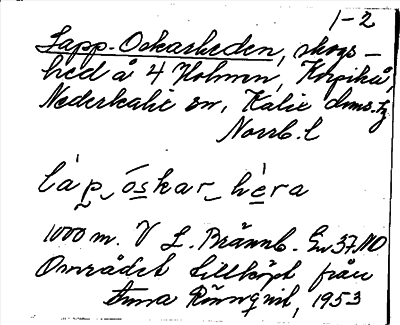 1-2
Lapp-Oskarsheden, skogs-
hed å 4 Holmen, Korpikå,
Nederkalix sn, Kalix dms. tg
Norrb. l
láp óskar hèra
1000 m. V L. Brännb. Ev 37 NO
Området tillköpt från
Anna Rönnqvist, 1953